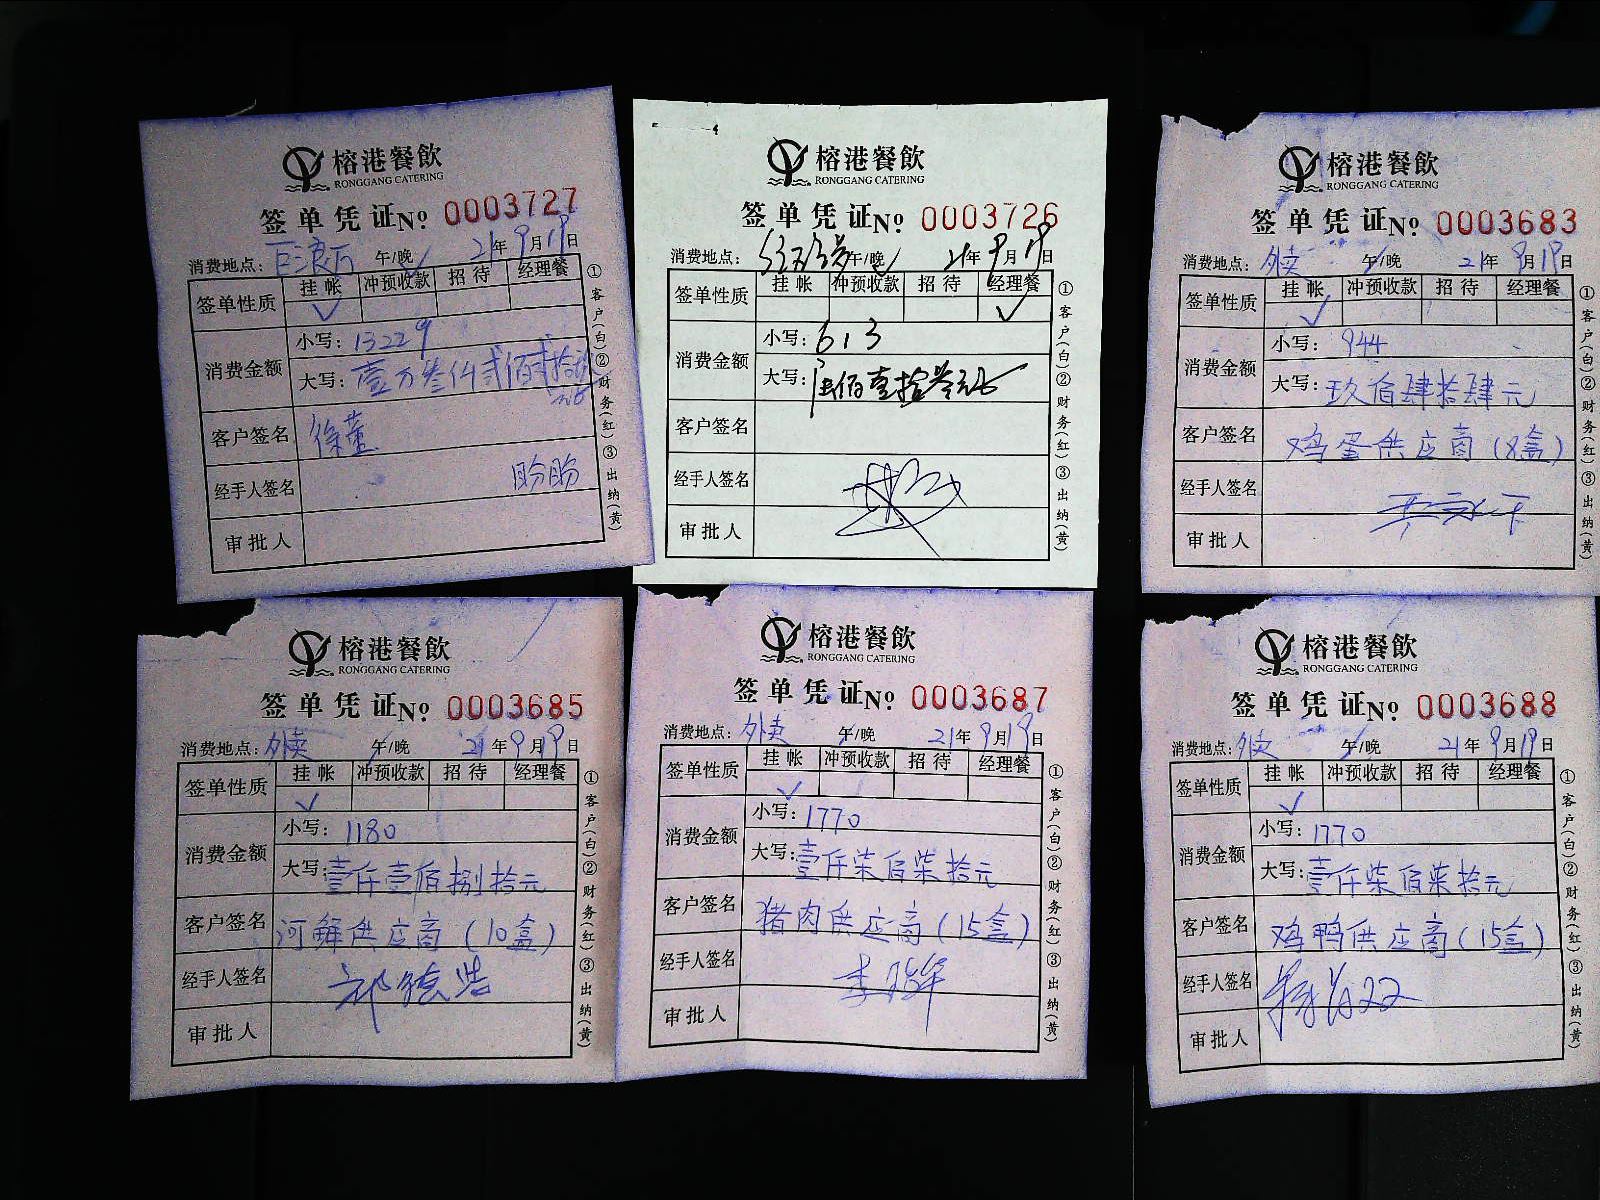 榕港餐飲
RONGGANG CATERING
签单凭证No. 0003727
消费地点: 午/晚 21年9月19日
签单性质 挂帐 冲预收款 招待 经理餐
✓
消费金额 小写: 13229
大写: 壹万叁仟贰佰贰拾玖元
客户签名 徐董
经手人签名 盼盼
审批人
①客户(白)②财务(红)③出纳(黄)
榕港餐飲
RONGGANG CATERING
签单凭证No. 0003726
消费地点: 午/晚 21年9月19日
签单性质 挂帐 冲预收款 招待 经理餐
✓
消费金额 小写: 613
大写: 陆佰壹拾叁元
客户签名
经手人签名
审批人
①客户(白)②财务(红)③出纳(黄)
榕港餐飲
RONGGANG CATERING
签单凭证No. 0003683
消费地点: 外卖 午/晚 21年9月19日
签单性质 挂帐 冲预收款 招待 经理餐
✓
消费金额 小写: 944
大写: 玖佰肆拾肆元
客户签名 鸡蛋供应商(8盒)
经手人签名
审批人
①客户(白)②财务(红)③出纳(黄)
榕港餐飲
RONGGANG CATERING
签单凭证No. 0003685
消费地点: 外卖 午/晚 21年9月19日
签单性质 挂帐 冲预收款 招待 经理餐
✓
消费金额 小写: 1180
大写: 壹仟壹佰捌拾元
客户签名 河鲜供应商(10盒)
经手人签名
审批人
①客户(白)②财务(红)③出纳(黄)
榕港餐飲
RONGGANG CATERING
签单凭证No. 0003687
消费地点: 外卖 午/晚 21年9月19日
签单性质 挂帐 冲预收款 招待 经理餐
✓
消费金额 小写: 1770
大写: 壹仟柒佰柒拾元
客户签名 猪肉供应商(15盒)
经手人签名
审批人
①客户(白)②财务(红)③出纳(黄)
榕港餐飲
RONGGANG CATERING
签单凭证No. 0003688
消费地点: 外卖 午/晚 21年9月19日
签单性质 挂帐 冲预收款 招待 经理餐
✓
消费金额 小写: 1770
大写: 壹仟柒佰柒拾元
客户签名 鸡鸭供应商(15盒)
经手人签名
审批人
①客户(白)②财务(红)③出纳(黄)